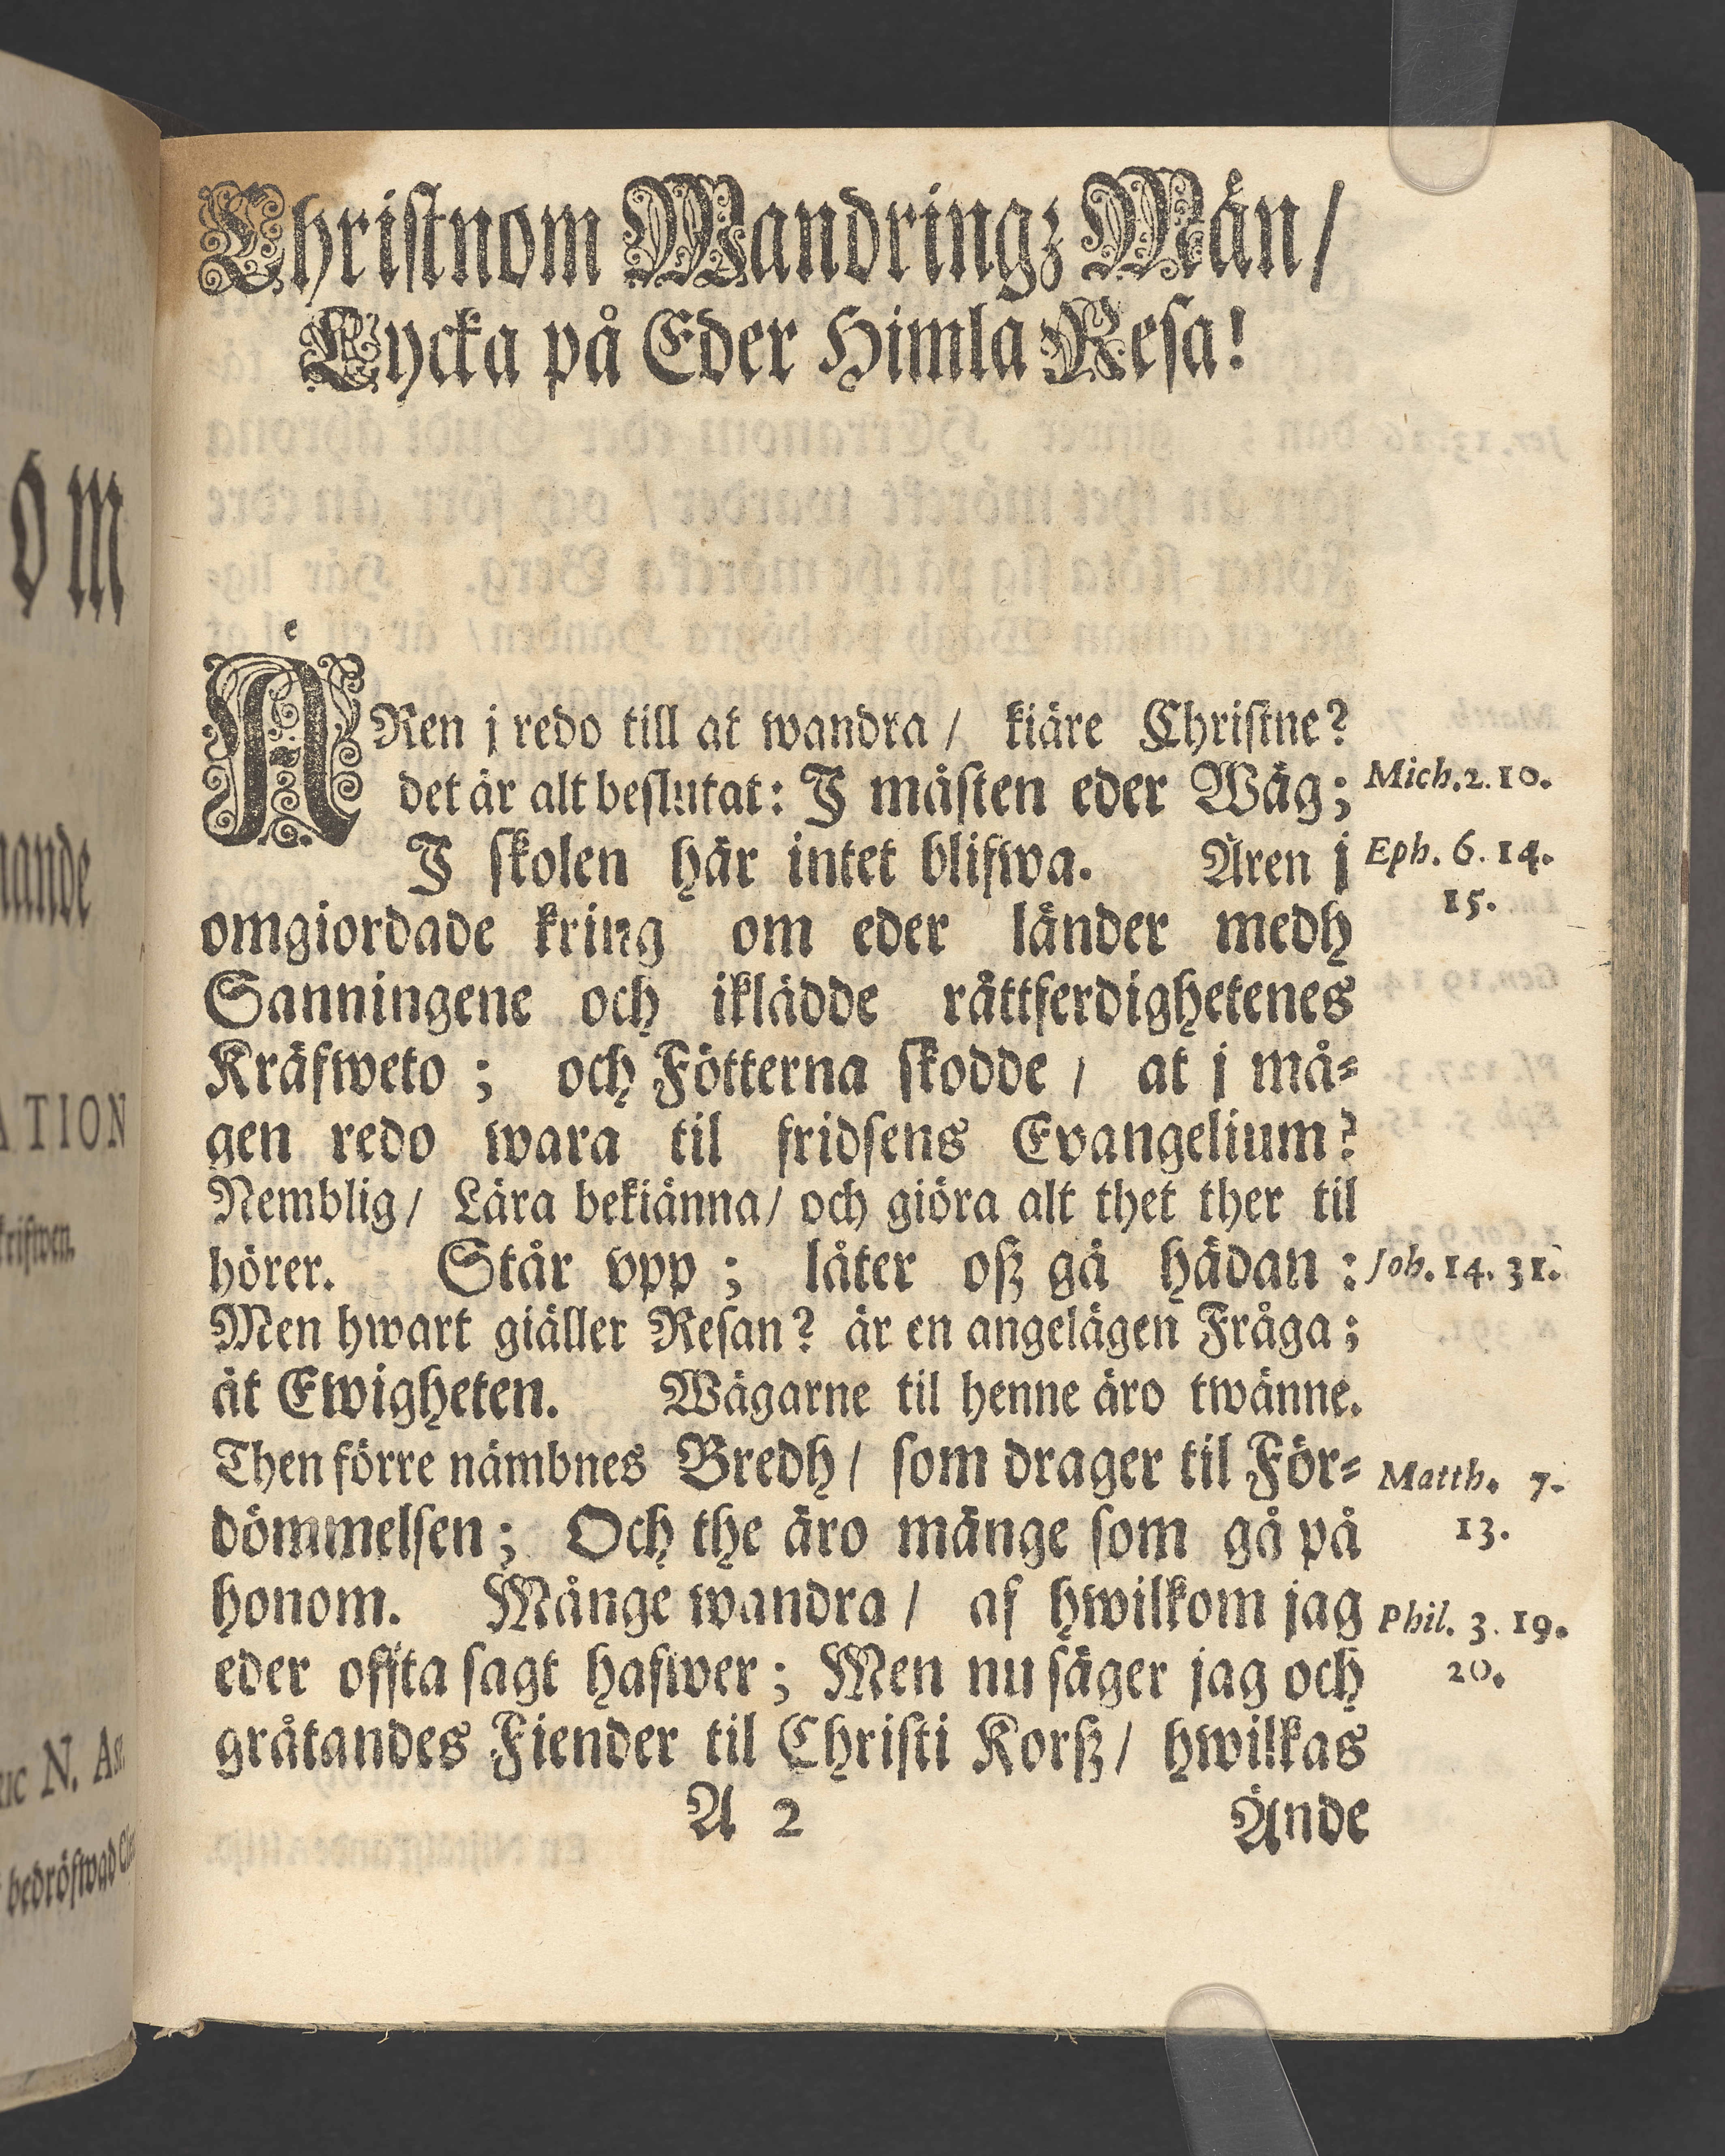 om
nande
ATION
krifwen.
ric N. As.
bedröfwad
Christnom Wandringz Män/
Lycka på Eder Himla Resa!
ÄRen j redo till at wandra / kiäre Christne?
det är alt beslutat: I måsten eder Wäg; Mich. 2. 10.
I skolen här intet blifwa. Ären j Eph. 6. 14.
15.
omgiordade kring om eder länder medh
Sanningene och iklädde rättferdighetenes
Kräfweto ; och Fötterna skodde / at j må-
gen redo wara til fridsens Evangelium?
Nemblig/ Lära bekiänna/ och giöra alt thet ther til
hörer. Står vpp ; låter oß gå hädan : Joh. 14. 31.
Men hwart giäller Resan? är en angelägen Fråga;
åt Ewigheten. Wägarne til henne äro twänne.
Then förre nämbnes Bredh/ som drager til För- Matth. 7.
dömmelsen; Och the äro månge som gå på 13.
honom. Månge wandra / af hwilkom jag Phil. 3. 19.
eder offta sagt hafwer; Men nu säger jag och 20.
gråtandes Fiender til Christi Korß/ hwilkas
A 2 Ände